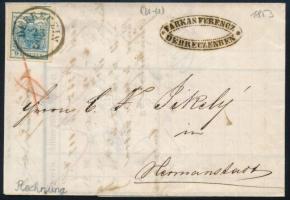 1853
FARKAS FERENCZ
DEBRECZENBEN
Herrn C. F. Jikely
in
Hermanstadt
Rechnung